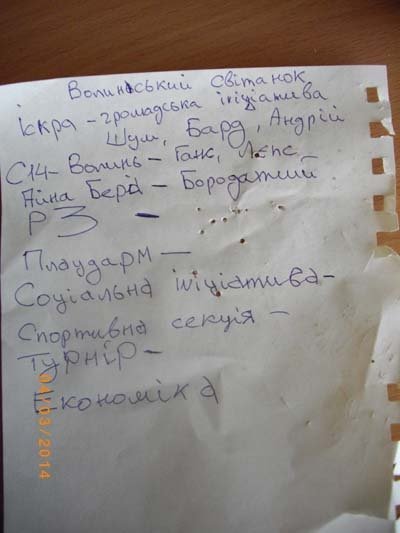 Волинський світанок
Іскра - громадська ініціатива
Шум, Бард, Андрій
С14- Волинь - Ганс, Лєпс
Бера - Бородатий
РЗ -
Плацдарм -
Соціальна ініціатива -
Спортивна секція -
Турнір -
Економіка
04/03/2014